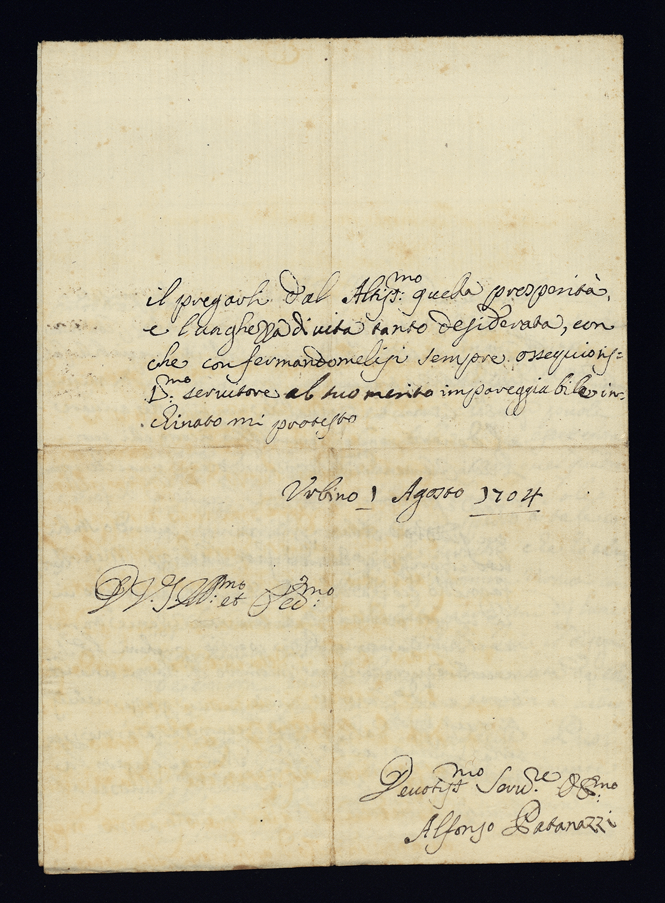 il pregarli dal Altiss.mo quella prosperità,
e lunghezza di vita tanto desiderata, con
che confermandomelisi sempre ossequiosis=
D.mo servitore al suo merito impareggiabile in-
chinato mi protesto
Urbino 1 Agosto 1704
D V. S. Ill.mo et Rev.mo
Devotiss.mo Serv.re
Alfonso Patanazzi